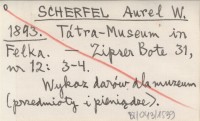 SCHERFEL Aurel W.
1893. Tátra-Museum in
Felka. — Zipser Bote 31,
nr 12: 3-4.
Wykaz darów dla muzeum
(przedmioty i pieniądze).